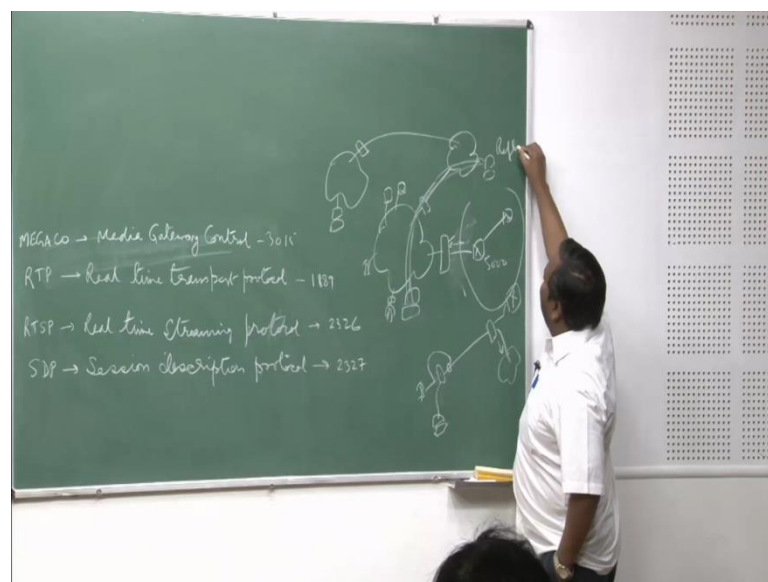 MEGACO → Media Gateway Control - 3015
RTP → Real time transport protocol - 1889
RTSP → Real time Streaming protocol → 2326
SDP → Session description protocol → 2327